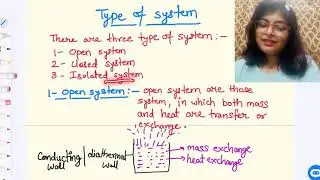 Type of system
There are three type of system:-
1- Open system
2- Closed system
3- Isolated system
1- Open system:- open system are those
system, in which both mass
and heat are transfer or
exchange.
conducting wall | diathermal wall
mass exchange
heat exchange